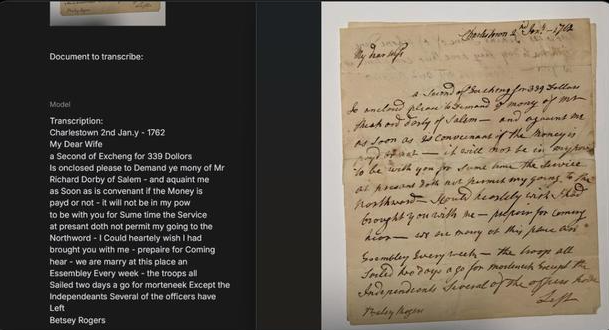 Document to transcribe:
Model
Transcription:
Charlestown 2nd Jan.y - 1762
My Dear Wife
a Second of Excheng for 339 Dollors
Is onclosed please to Demand ye mony of Mr
Richard Dorby of Salem - and aquaint me
as Soon as is convenant if the Money is
payd or not - it will not be in my pow
to be with you for Sume time the Service
at presant doth not permit my going to the
Northword - I Could heartely wish I had
brought you with me - prepaire for Coming
hear - we are marry at this place an
Essembley Every week - the troops all
Sailed two days a go for morteneek Except the
Independeants Several of the officers have
Left
Betsey Rogers
Charlestown 2d Jany - 1762
My dear Wife
a Second of Excheng for 339 Dollors
Is onclosed please to Demand ye mony of Mr
Dorby of Salem - and aquaint me
as Soon as is Convenant if the Money is
or not - it will not be in my
to be with you for Sume time the Service
at presant doth not permit my going to the
Northword - I Could heartely wish I had
brought you with me - for Coming
- we are at this place
Every week - the troops all
Sailed two days a go for morteneek Except the
Independents Several of the officers
Left
Betsey Rogers